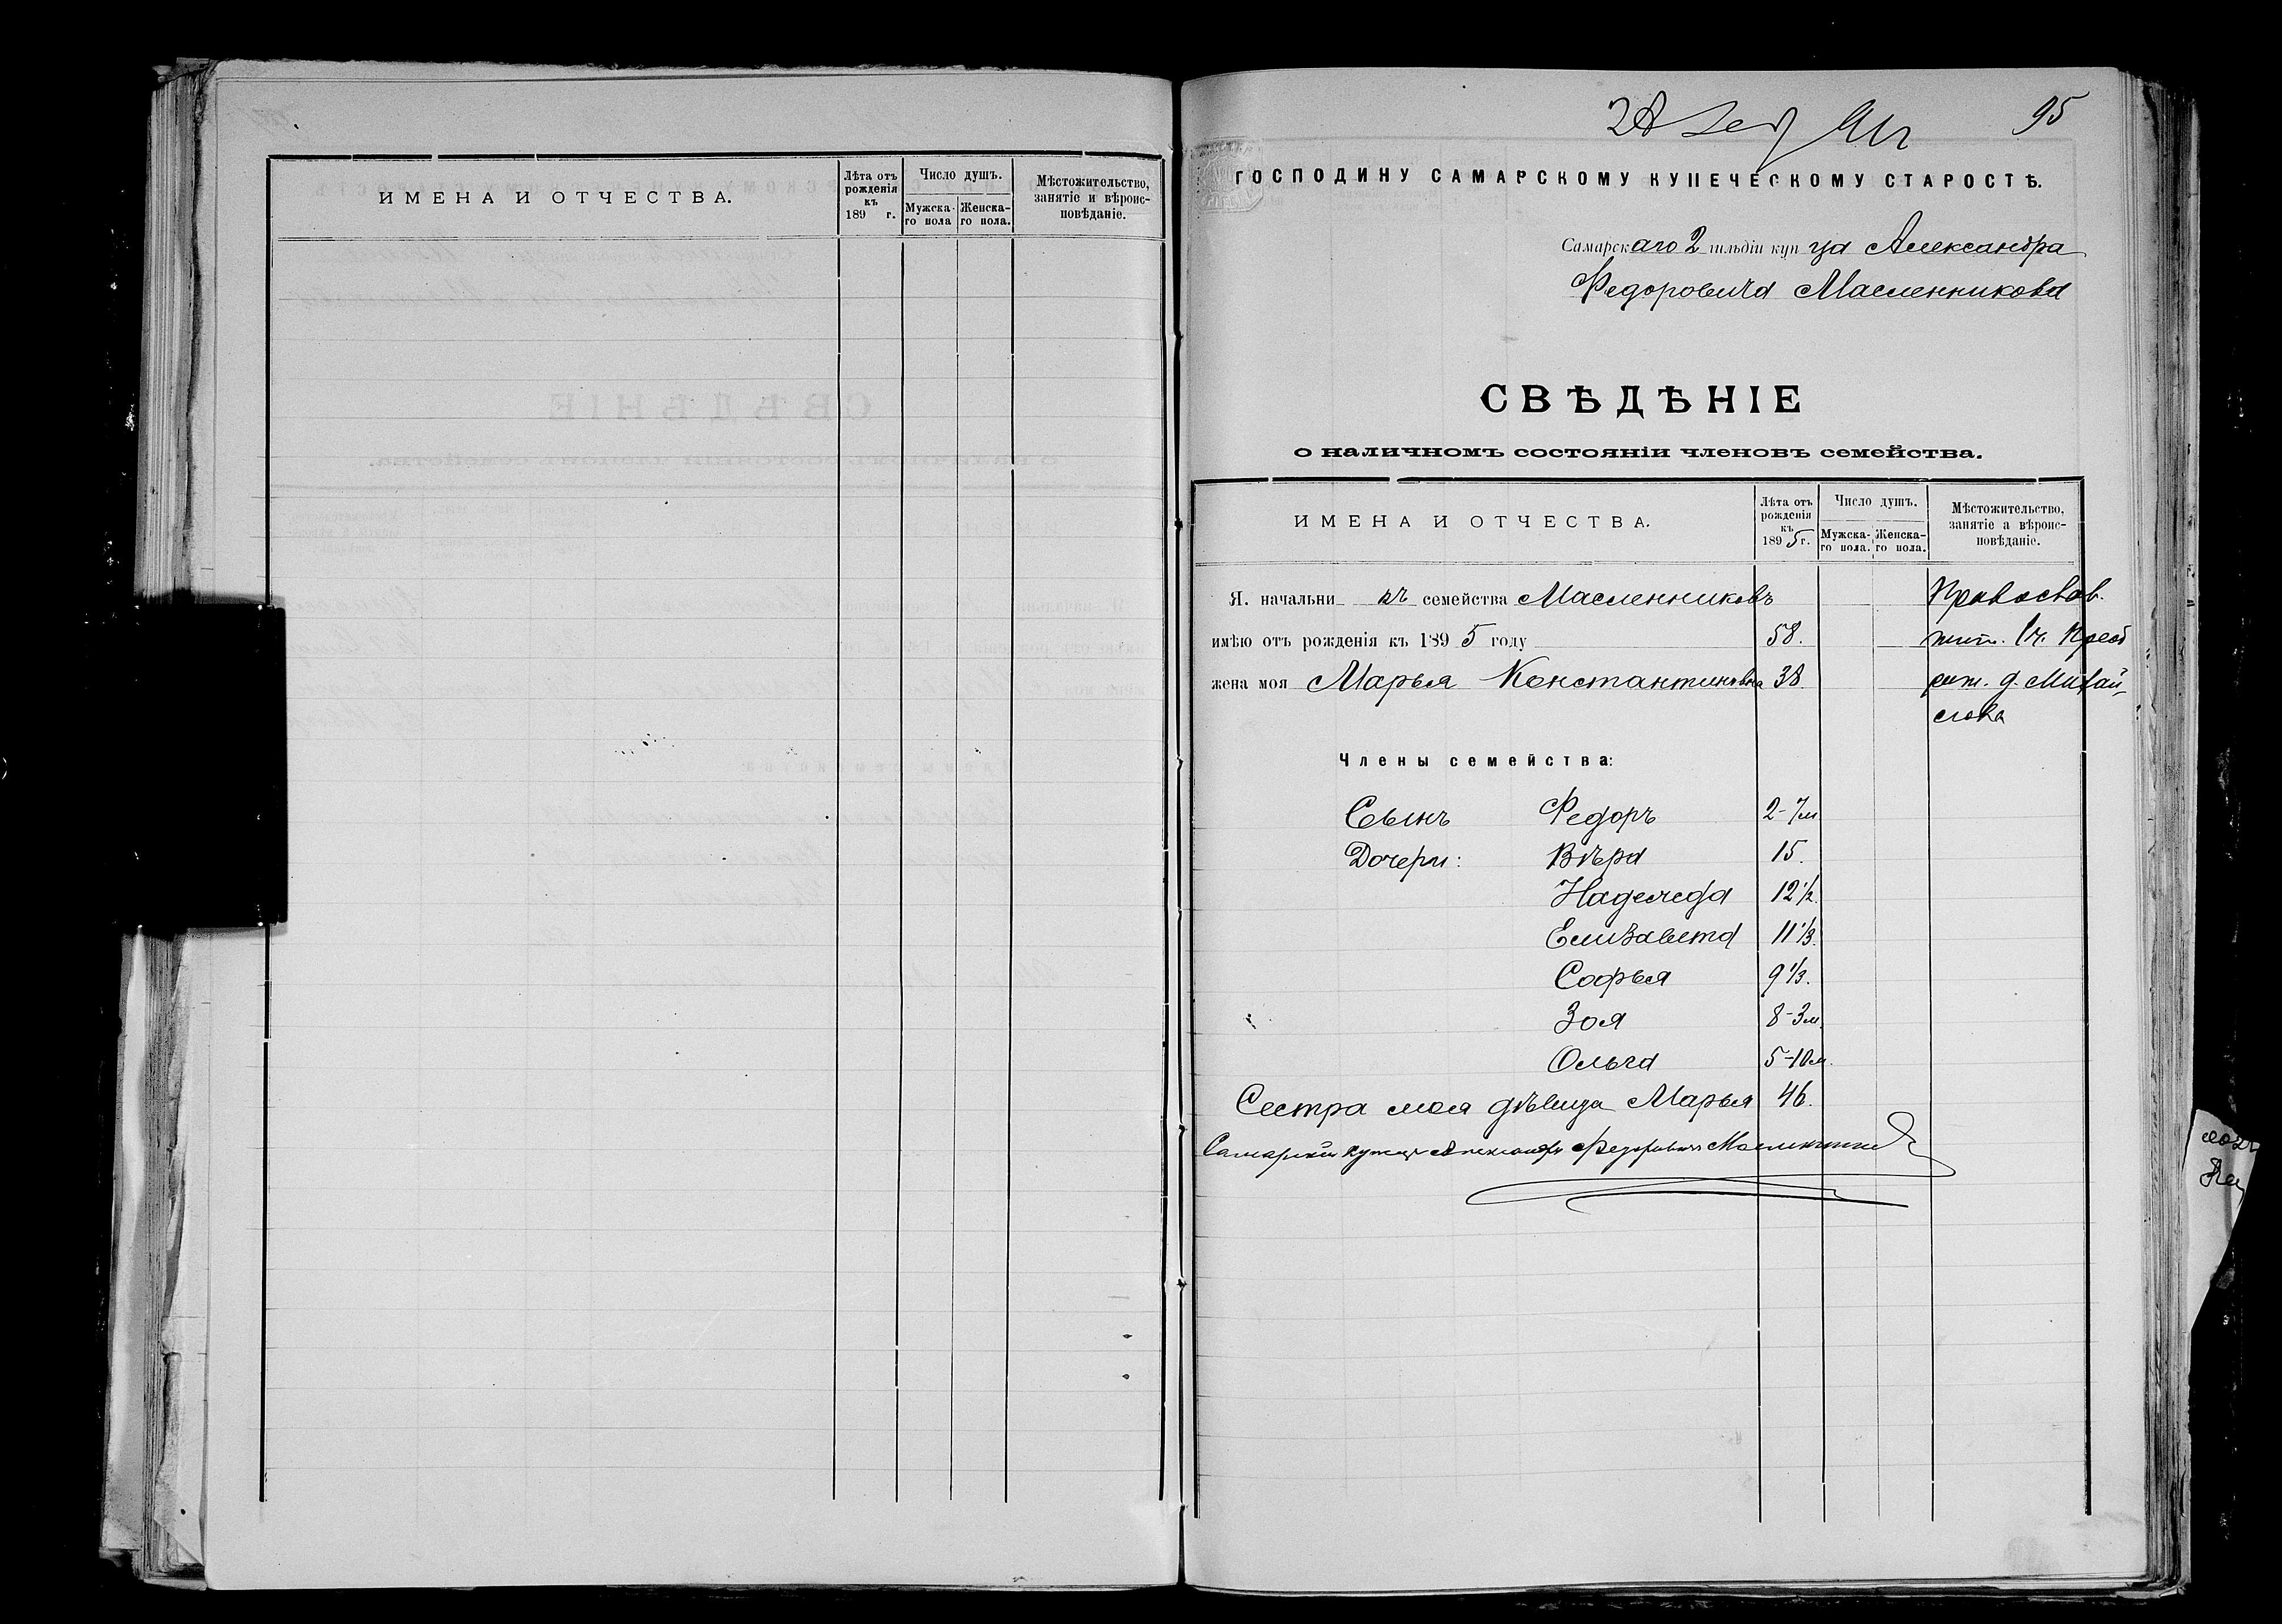 ИМЕНА И ОТЧЕСТВА.
Лѣта отъ рожденія къ 189 г.
Число душъ.
Мужска-го пола
Женска-го пола.
Мѣстожительство, занятіе и вѣроис-повѣданіе.
95
ГОСПОДИНУ САМАРСКОМУ КУПЕЧЕСКОМУ СТАРОСТѢ.
Самарскаго 2 гильдіи купца Александра
Федоровича Масленникова
СВѢДѢНІЕ
о наличномъ состояніи членовъ семейства.
ИМЕНА И ОТЧЕСТВА.
Лѣта отъ рожденія къ 1895 г.
Число душъ.
Мужска-го пола.
Женска-го пола.
Мѣстожительство, занятіе а вѣроис-повѣданіе.
Я. начальникъ семейства Масленниковъ Православ.
имѣю отъ рожденія къ 1895 году 58. жит. 1 ч.
жена моя Марья Константиновна 38 д. Михай-
лова
Члены семейства:
Сынъ Федоръ 2-7м
Дочери: Вѣра 15.
Надежда 12 1/2.
Елизавета 11 1/3.
Софья 9 1/3.
Зоя 8-3м.
Ольга 5-10м.
Сестра моя дѣвица Марья 46.
Самарскій купецъ Александръ Федоровичъ Масленников